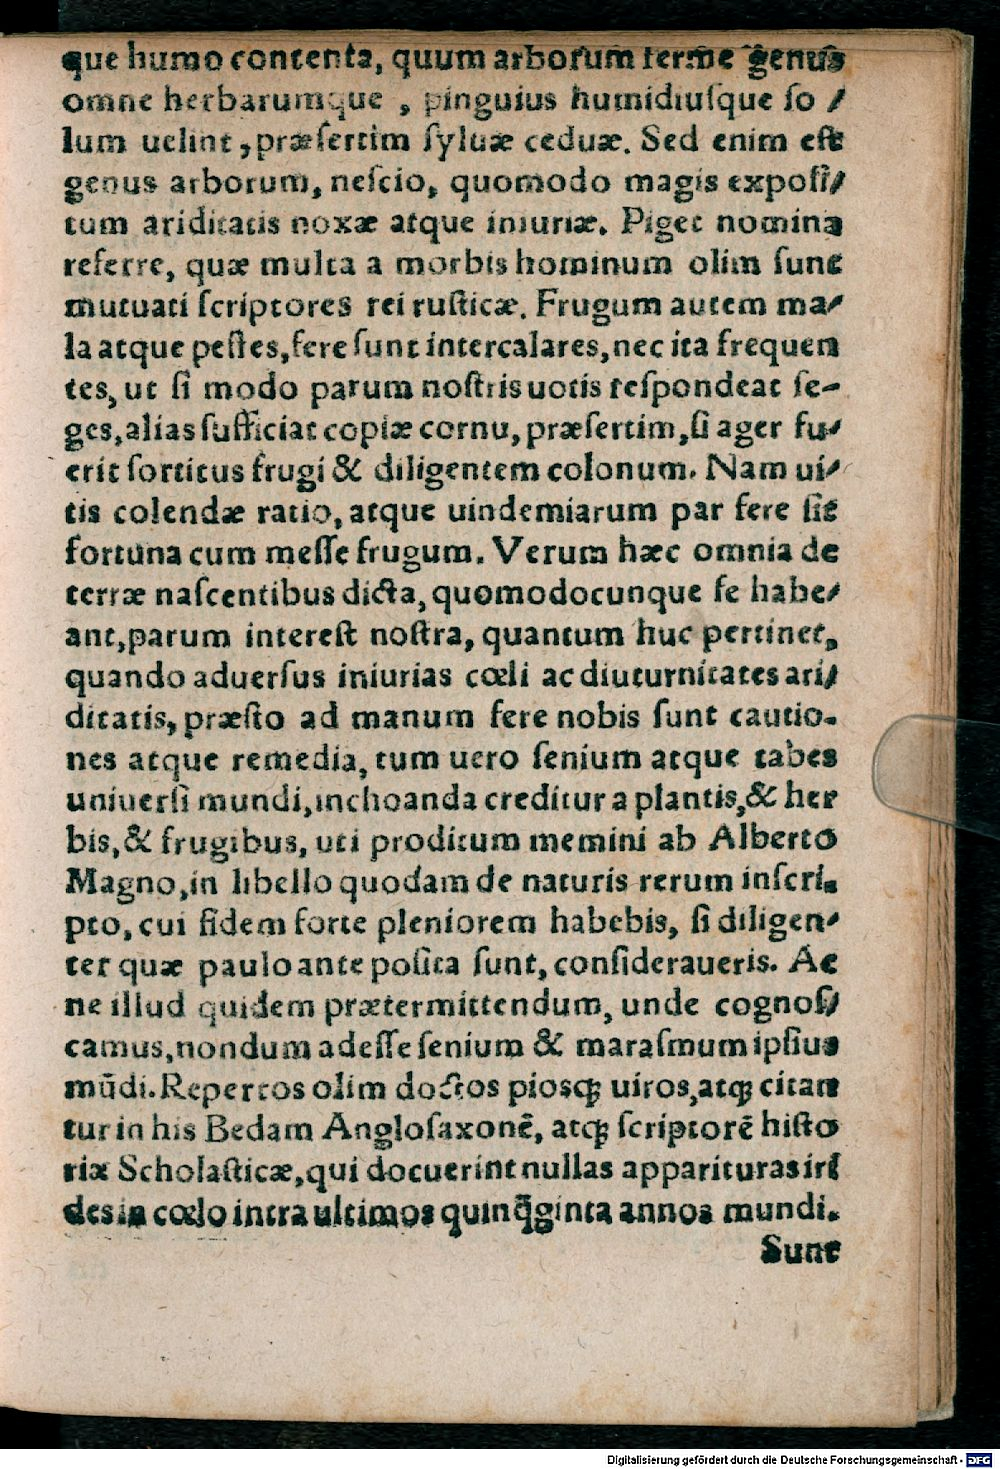 que humo contenta, quum arborum ferme genus
omne herbarumque , pinguius humidiuſque ſo /
lum uelint, præſertim ſyluæ ceduæ. Sed enim eſt
genus arborum, neſcio, quomodo magis expoſi/
tum ariditatis noxæ atque iniuriæ. Piget nomina
referre, quæ multa a morbis hominum olim ſunt
mutuati ſcriptores rei ruſticæ. Frugum autem ma/
la atque peſtes, fere ſunt intercalares, nec ita frequen
tes, ut ſi modo parum noſtris uotis reſpondeat ſe-
ges, alias ſufficiat copiæ cornu, præſertim, ſi ager fu/
erit ſortitus frugi & diligentem colonum. Nam ui/
tis colendæ ratio, atque uindemiarum par fere ſit
fortuna cum meſſe frugum. Verum hæc omnia de
terræ naſcentibus dicta, quomodocunque ſe habe/
ant, parum intereſt noſtra, quantum huc pertinet,
quando aduerſus iniurias cœli ac diuturnitates ari/
ditatis, præſto ad manum fere nobis ſunt cautio-
nes atque remedia, tum uero ſenium atque tabes
uniuerſi mundi, inchoanda creditur a plantis, & her
bis, & frugibus, uti proditum memini ab Alberto
Magno, in libello quodam de naturis rerum inſcri-
pto, cui fidem forte pleniorem habebis, ſi diligen/
ter quæ paulo ante poſita ſunt, conſideraueris. At
ne illud quidem prætermittendum, unde cognoſ/
camus, nondum adeſſe ſenium & maraſmum ipſius
mūdi. Repertos olim doctos piosqꝫ uiros, atqꝫ citan
tur in his Bedam Angloſaxonē, atqꝫ ſcriptorē hiſto
riæ Scholaſticæ, qui docuerint nullas apparituras iri
des in cœlo intra ultimos quinq̄ginta annos mundi.
Sunt
Digitalisierung gefördert durch die Deutsche Forschungsgemeinschaft - DFG